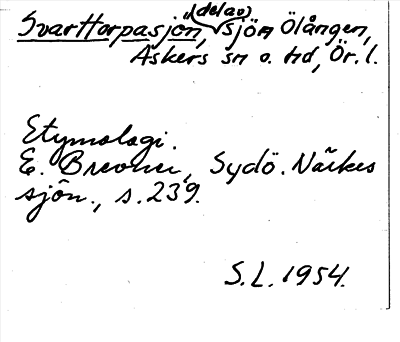 Svarttorpasjön, (del av) sjön Ölången,
Askers sn o. hd, Ör. l.
Etymologi.
E. Brevner, Sydö. Närkes
sjön., s. 239.
S.L. 1954.